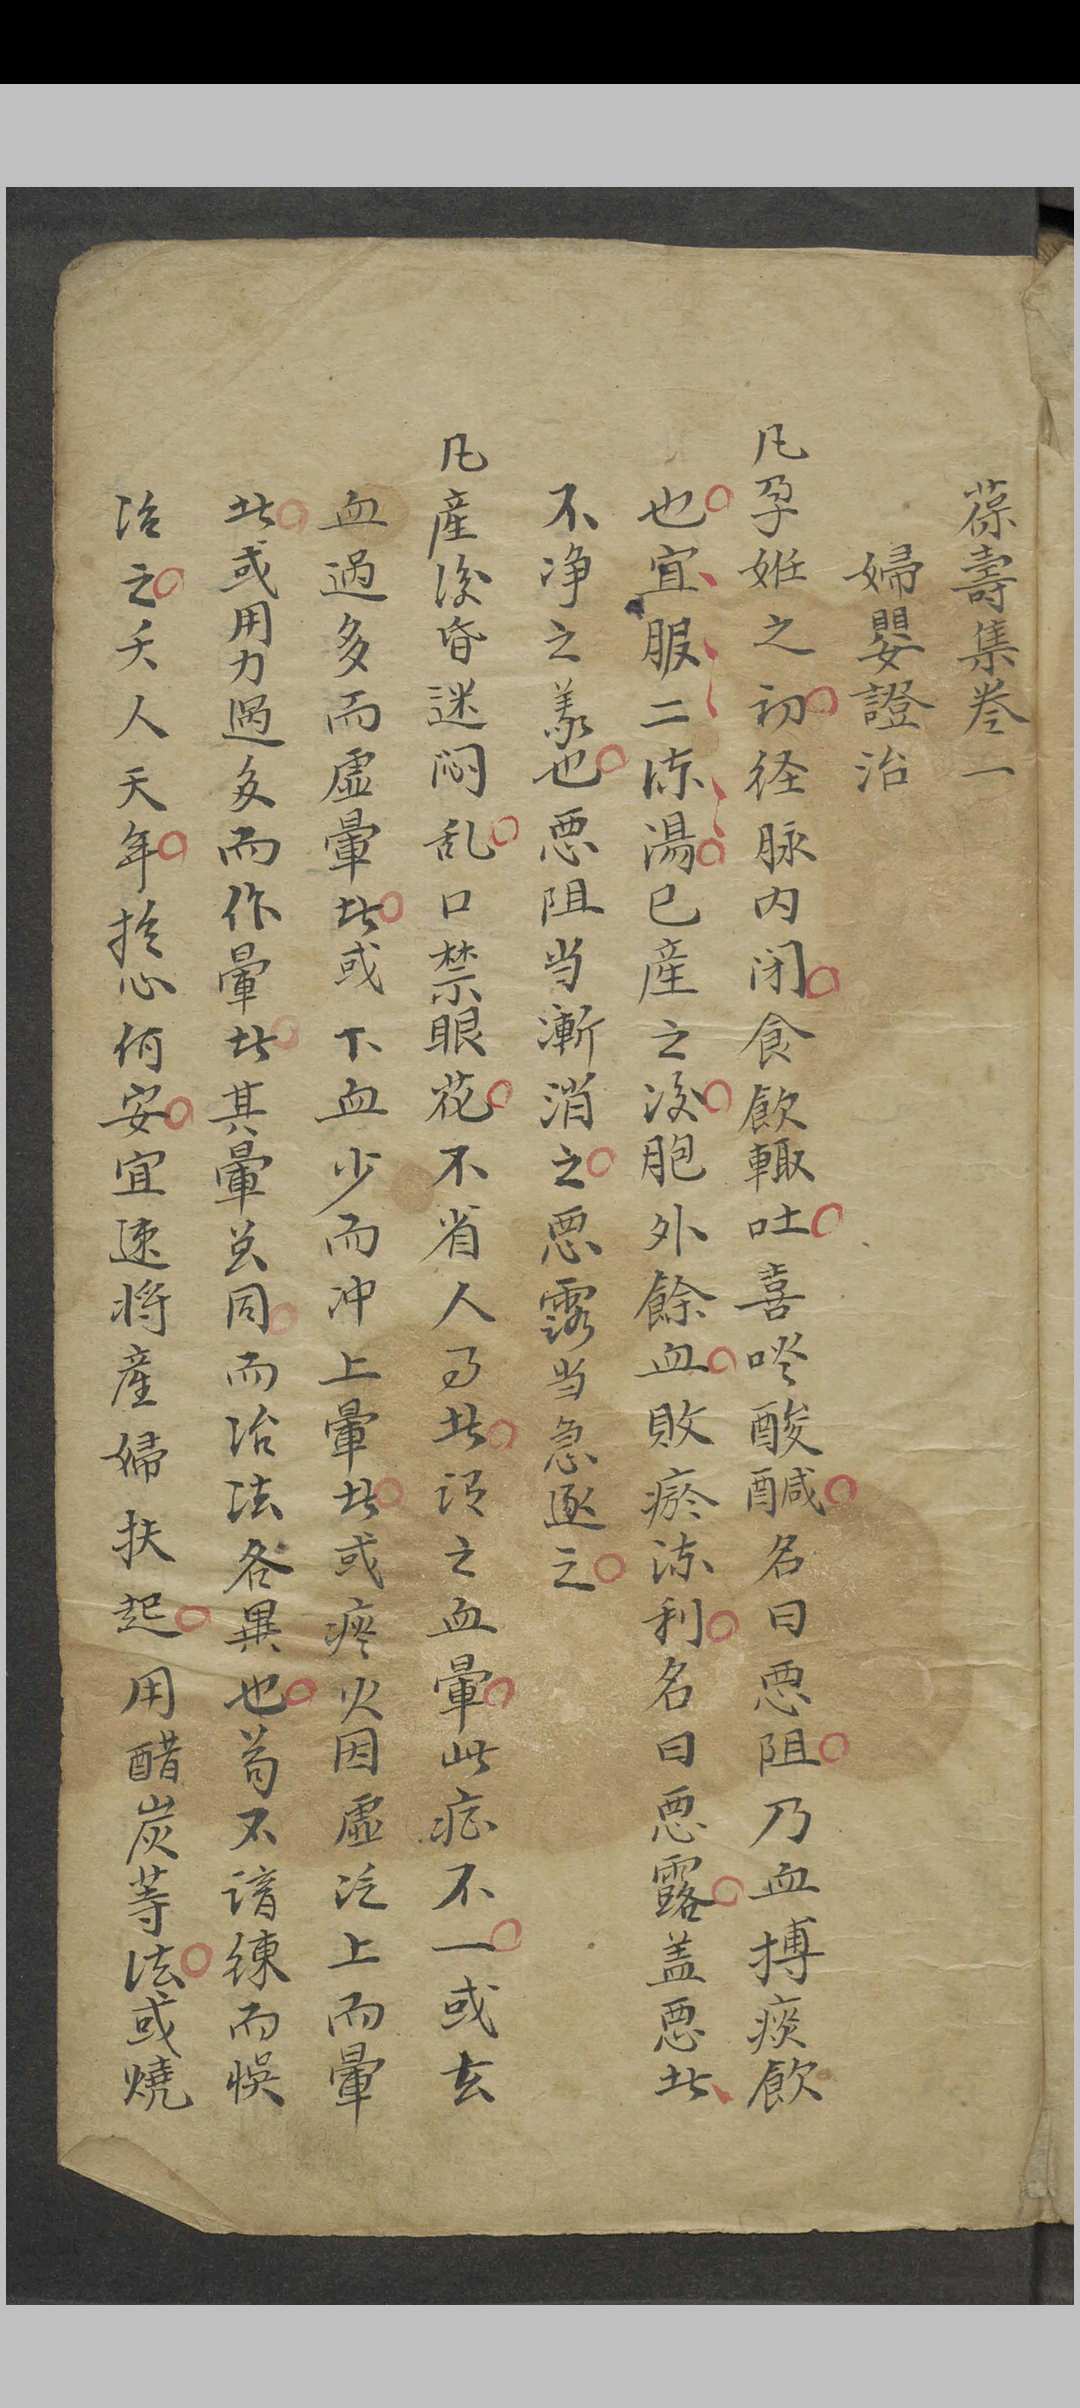 葆壽集卷一
婦嬰證治
凡孕姙之初径脉内闭食飲輙吐喜啖酸醎名曰悪阻乃血搏痰飲
也宜服二陈湯已産之後胞外餘血敗瘀流利名曰悪露盖悪者
不净之義也悪阻当漸消之悪露当急逐之
凡産後昏迷悶乱口禁眼花不省人事者谓之血暈此症不一或去
血過多而虚暈者或下血少而冲上暈者或痰火因虚泛上而暈
者或用力過多而作暈者其暈虽同而治法各異也苟不諳練而悞
治之夭人天年扵心何安宜速将産婦扶起用醋炭等法或燒